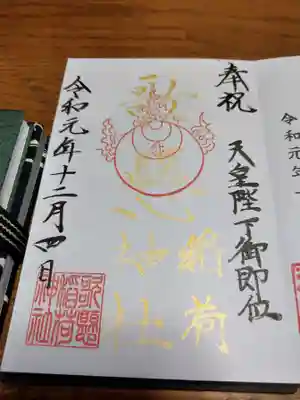 奉祝
天皇陛下御即位
歌懸
稲荷
神社
令和元年十二月四日
歌懸
稲荷
神社
令和元年